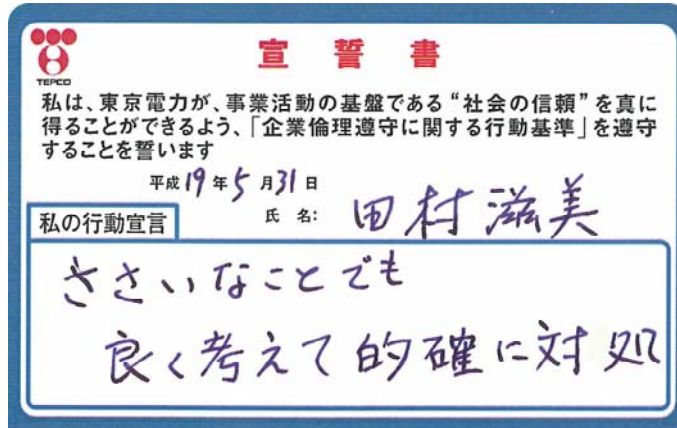 TEPCO
宣誓書
私は、東京電力が、事業活動の基盤である“社会の信頼”を真に
得ることができるよう、「企業倫理遵守に関する行動基準」を遵守
することを誓います
平成19年5月31日
氏名: 田村滋美
私の行動宣言
ささいなことでも
良く考えて的確に対処